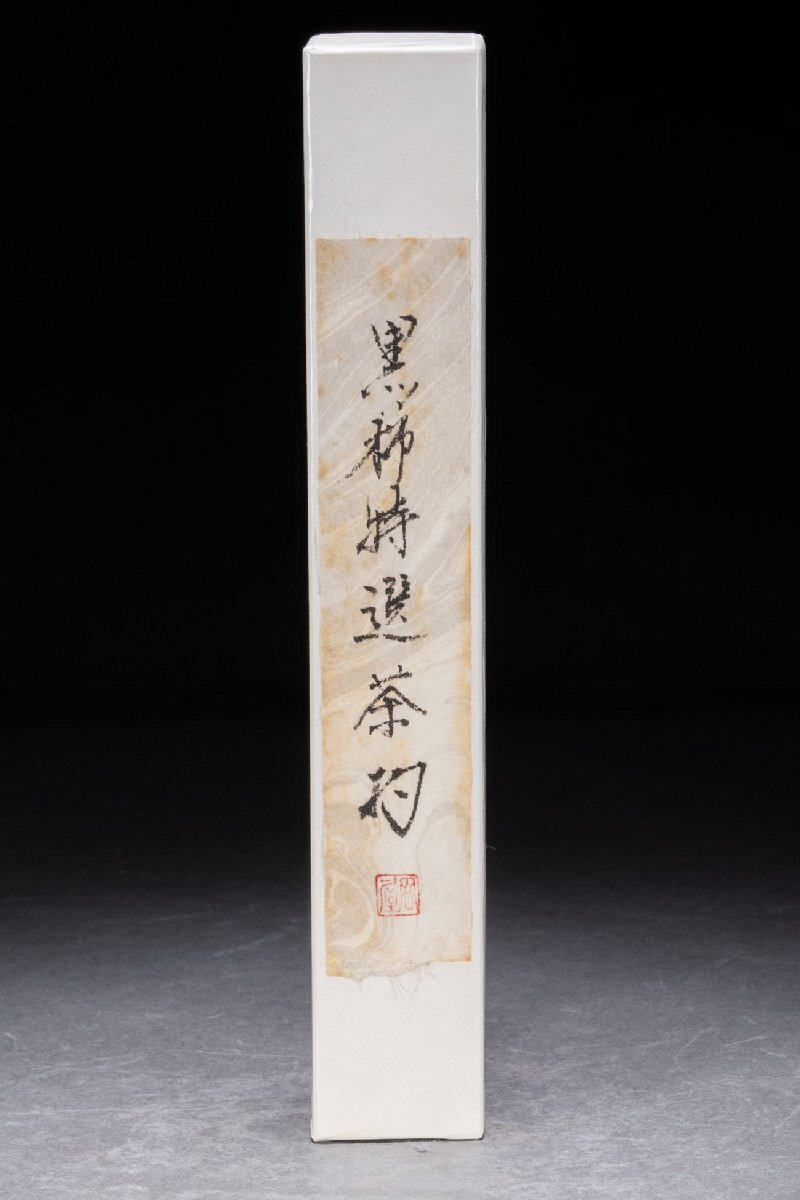 黒柿特選茶杓